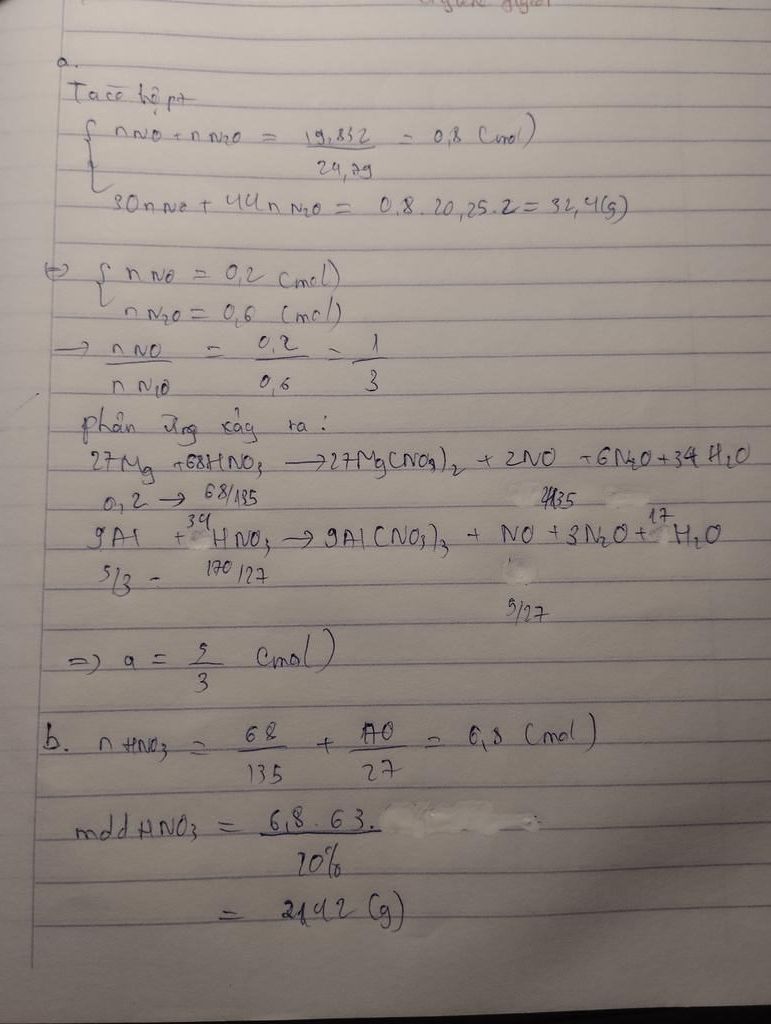 a.
Ta có hệ pt
{ nNO + nN2O = 19,832/24,79 = 0,8 (mol)
30nNO + 44nN2O = 0,8.20,25.2 = 32,4(g)
⇔ { nNO = 0,2 (mol)
nN2O = 0,6 (mol)
→ nNO/nN2O = 0,2/0,6 = 1/3
phản ứng xảy ra:
27Mg + 68HNO3 → 27Mg(NO3)2 + 2NO + 6N2O + 34H2O
0,2 → 68/135
9Al + 34HNO3 → 9Al(NO3)3 + NO + 3N2O + 17H2O
5/3 - 170/27
5/27
=> a = 5/3 (mol)
b. nHNO3 = 68/135 + 170/27 = 6,8 (mol)
mdd HNO3 = 6,8.63./20%
= 2142 (g)